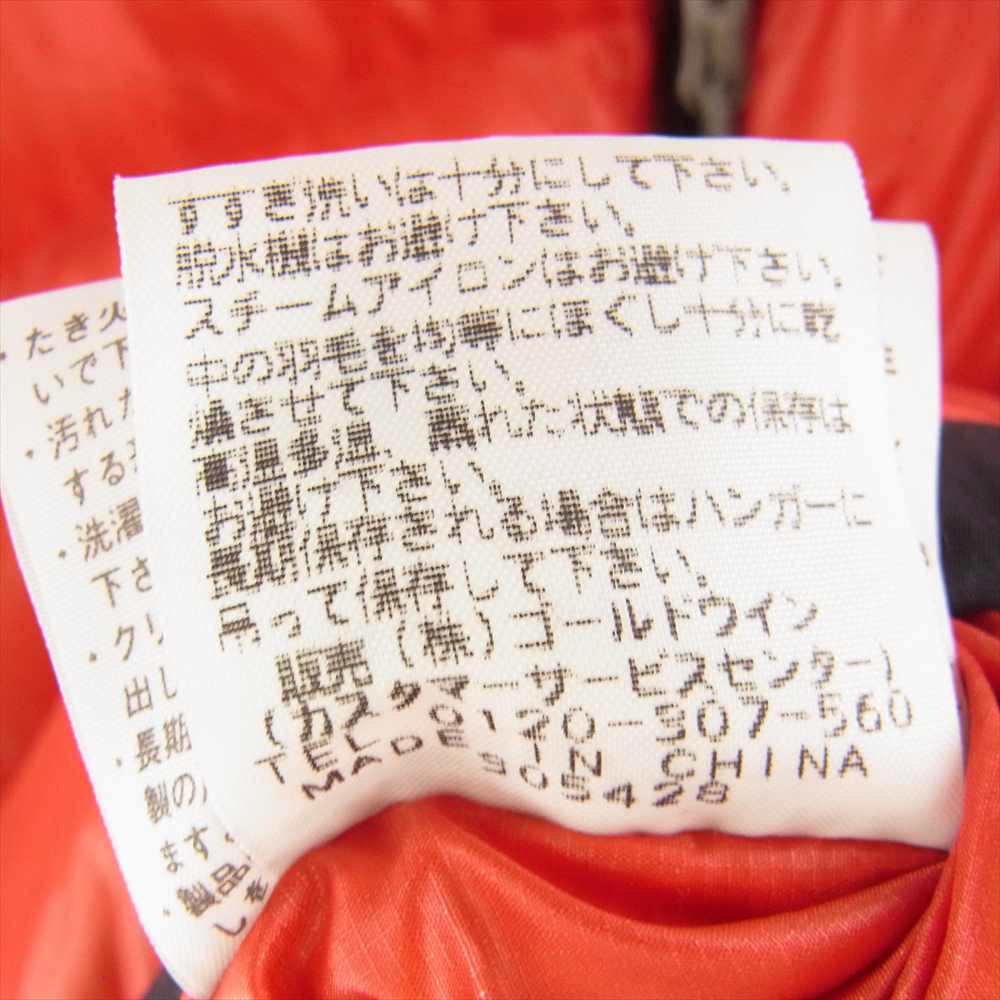 すすぎ洗いは十分にして下さい。
脱水機はお避け下さい。
スチームアイロンはお避け下さい。
中の羽毛を均等にほぐし十分に乾
燥させて下さい。
高温多湿、濡れた状態での保存は
お避け下さい。
長期保存される場合はハンガーに
吊って保存して下さい。
販売 (株)ゴールドウイン
(カスタマーサービスセンター)
TEL 0120-307-560
MADE IN CHINA
905428
・たき火
いで下
・汚れた
する
・洗濯
下さ
・クリ
出し
・長期
製の
ます
・製品
しを